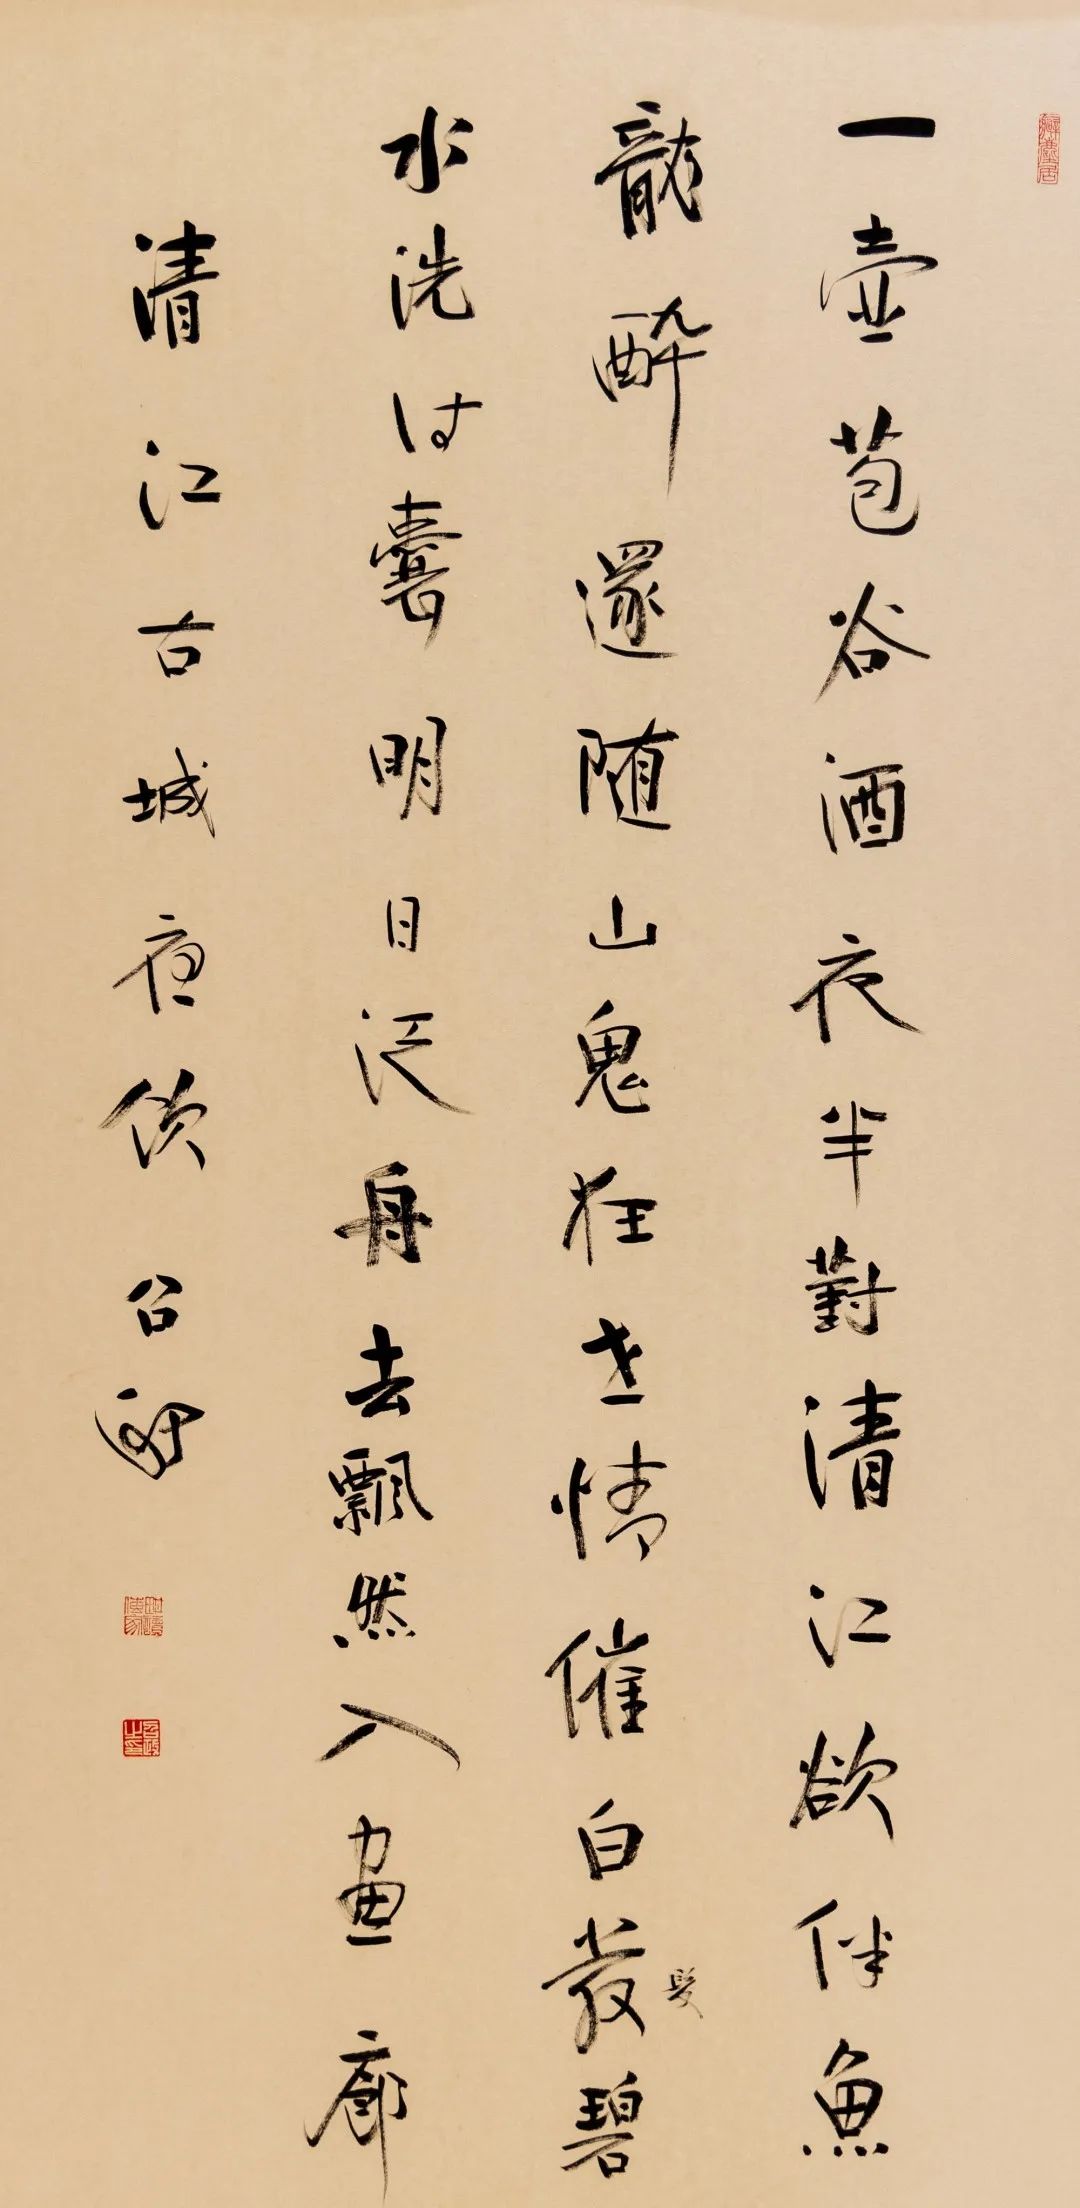 一壺苞谷酒夜半對清江欲伴魚
龍醉還随山鬼狂世情催白發碧
髮
水洗詩囊明日泛舟去飄然入畫廊
清江古城夜